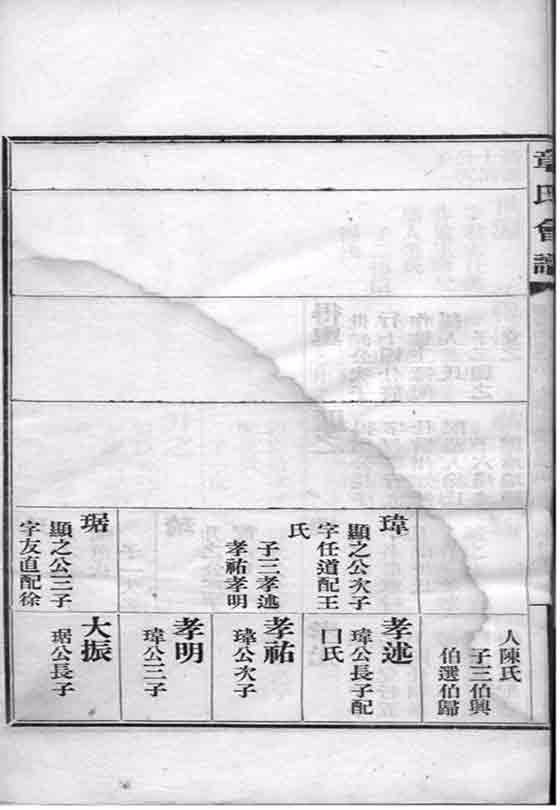 章氏會譜
瑋
顯之公次子
字任道配王
氏
子三孝述
孝祐孝明
琚
顯之公三子
字友直配徐
人陳氏
子三伯興
伯選伯歸
孝述
瑋公長子配
囗氏
孝祐
瑋公次子
孝明
瑋公三子
大振
琚公長子